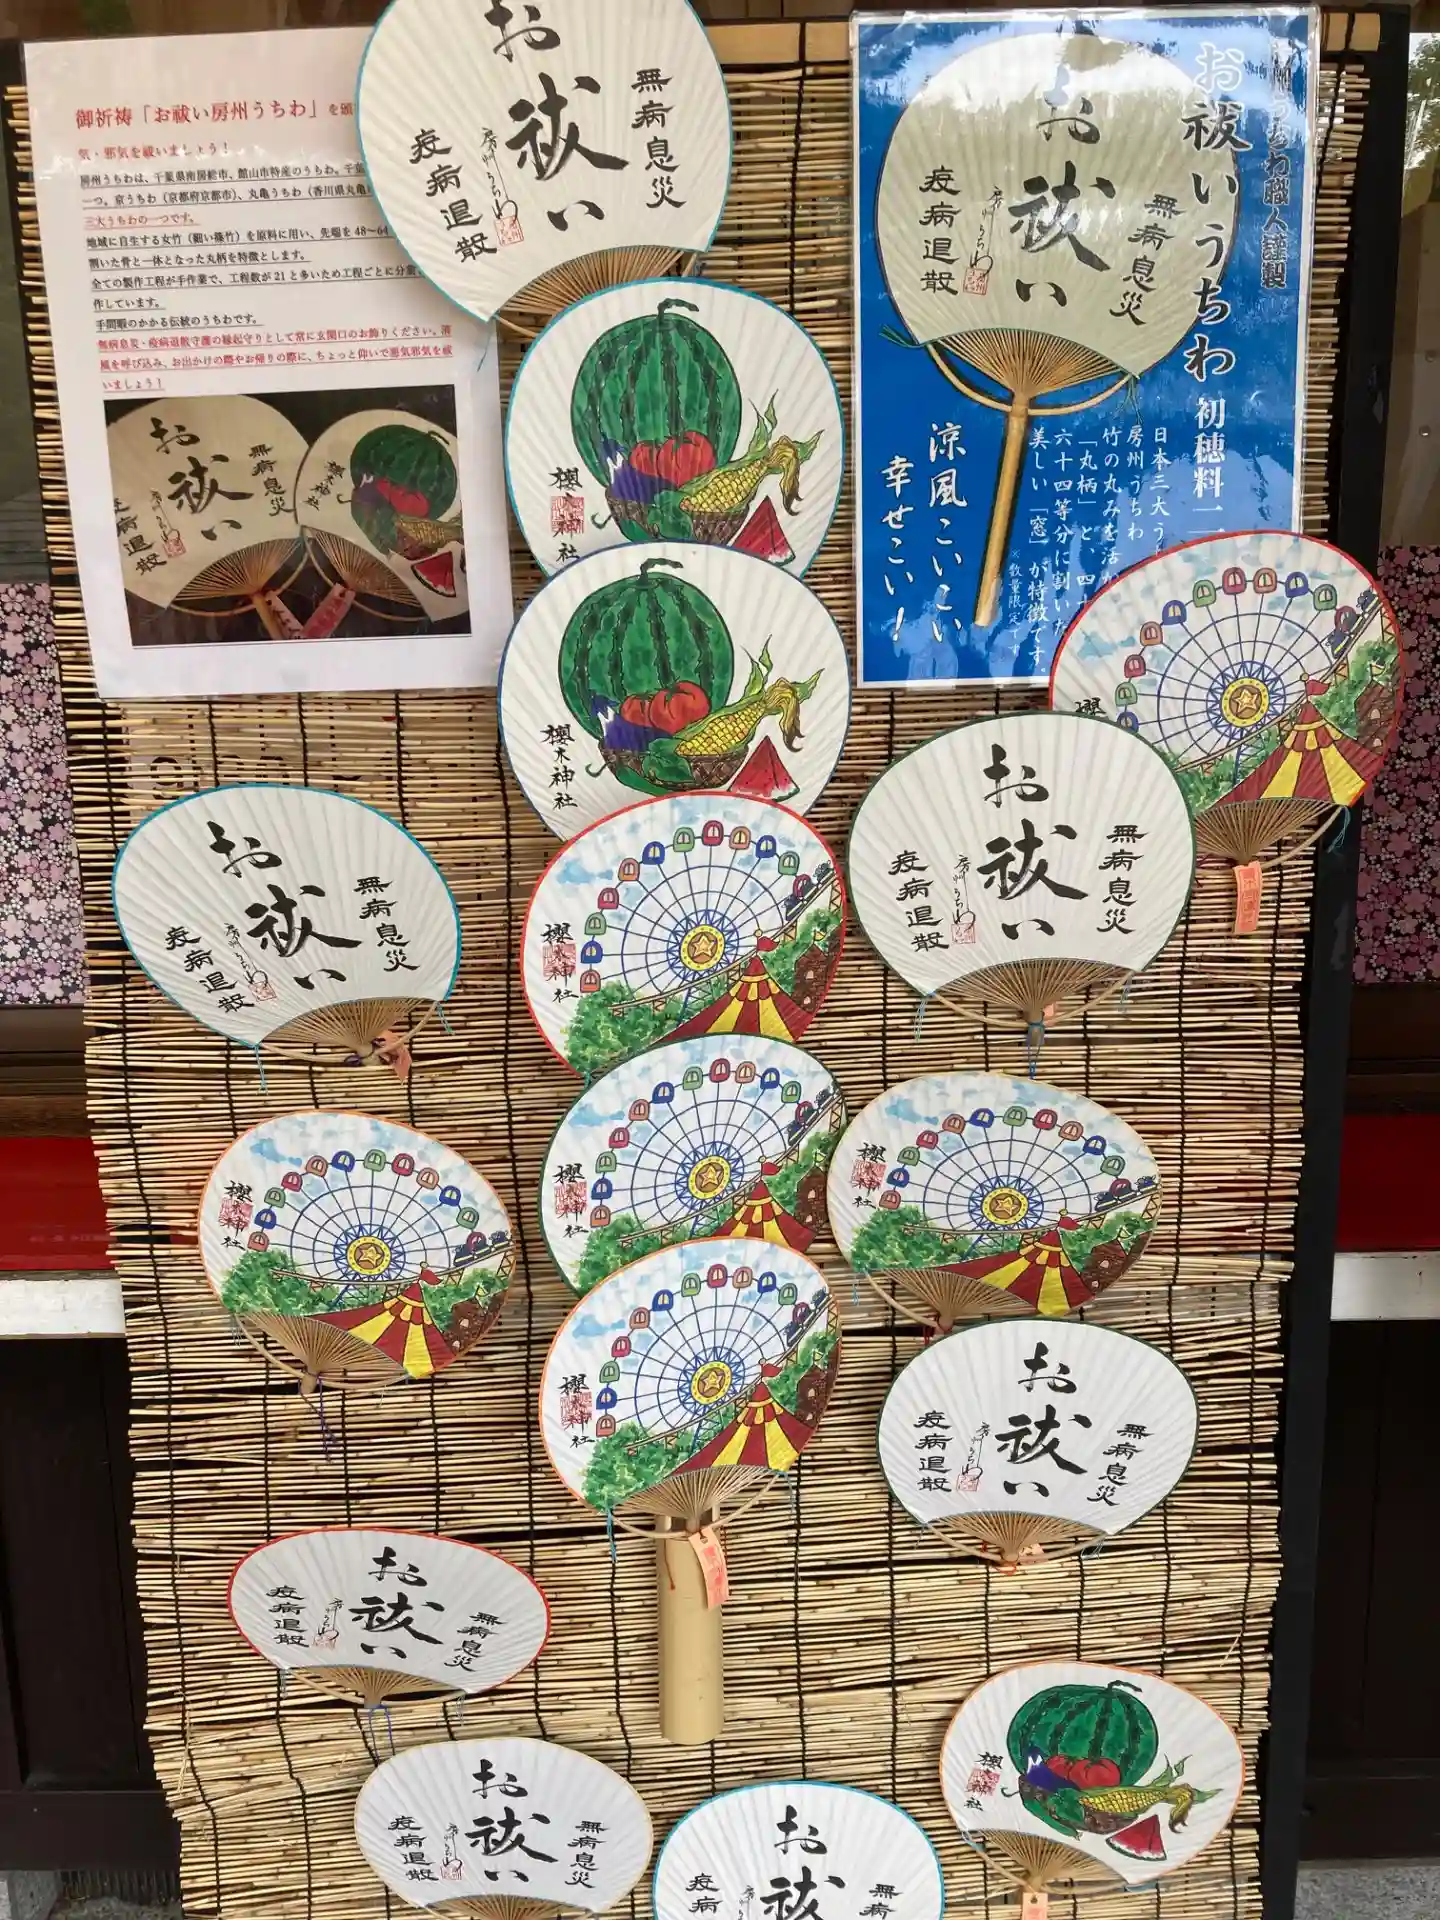 御祈祷「お祓い房州うちわ」を頒
気・邪気を祓いましょう！
房州うちわは、千葉県南房総市、館山市特産のうちわ。千葉
一つ。京うちわ（京都府京都市）、丸亀うちわ（香川県丸亀
三大うちわの一つです。
地域に自生する女竹（細い篠竹）を原料に用い、先端を48～64
割いた骨と一体となった丸柄を特徴とします。
全ての製作工程が手作業で、工程数が21と多いため工程ごとに分業
作しています。
手間暇のかかる伝統のうちわです。
無病息災・疫病退散守護の縁起守りとして常に玄関口のお飾りください。清
風を呼び込み、お出かけの際やお帰りの際に、ちょっと仰いで悪気邪気を祓
いましょう！
お祓い
無病息災
疫病退散
房州うちわ
櫻木神社
無病息災
お祓い
房州うちわ
疫病退散
うちわ職人謹製
お祓いうちわ
初穂料二
無病息災
お祓い
房州うちわ
疫病退散
日本三大う
房州うちわ
竹の丸みを活か
「丸柄」と、四十
六十四等分に割いた
美しい「窓」が特徴です。
※数量限定です
涼風こいこい
幸せこい！
櫻木神社
櫻木神社
櫻
無病息災
お祓い
房州うちわ
疫病退散
無病息災
お祓い
房州うちわ
疫病退散
櫻木神社
櫻木神社
櫻木神社
櫻木神社
櫻木神社
無病息災
お祓い
房州うちわ
疫病退散
無病息災
お祓い
房州うちわ
疫病退散
櫻木神社
無病息災
お祓い
房州うちわ
疫病退散
無病息
お祓
房州うちわ
疫病